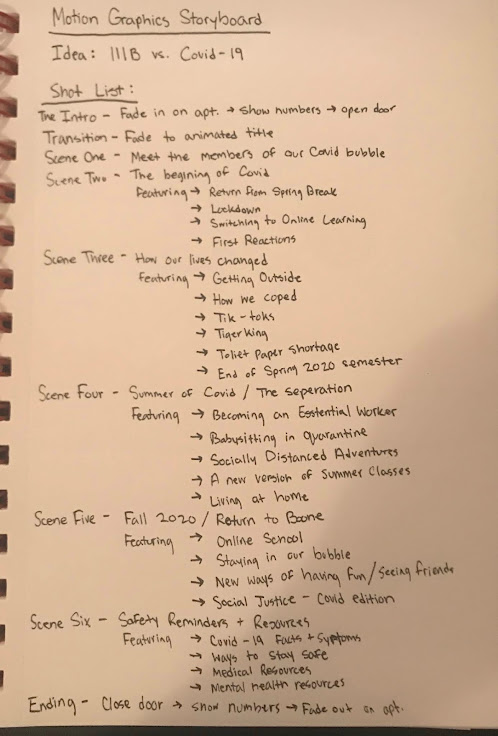 Motion Graphics Storyboard
Idea: 111B vs. Covid-19
Shot List:
The Intro - Fade in on apt. → show numbers → open door
Transition - Fade to animated title
Scene One - Meet the members of our Covid bubble
Scene Two - The begining of Covid
Featuring → Return from Spring Break
→ Lockdown
→ Switching to Online Learning
→ First Reactions
Scene Three - How our lives changed
Featuring → Getting Outside
→ How we coped
→ Tik-toks
→ Tiger King
→ Toliet Paper Shortage
→ End of Spring 2020 semester
Scene Four - Summer of Covid / The seperation
Featuring → Becoming an Esstential Worker
→ Babysitting in quarantine
→ Socially Distanced Adventures
→ A new version of Summer Classes
→ Living at home
Scene Five - Fall 2020 / Return to Boone
Featuring → Online School
→ Staying in our bubble
→ New ways of having fun/seeing friends
→ Social Justice - Covid edition
Scene Six - Safety Reminders + Resources
Featuring → Covid-19 Facts + Syptoms
→ Ways to Stay Safe
→ Medical Resources
→ Mental health resources
Ending - Close door → show numbers → Fade out on apt.